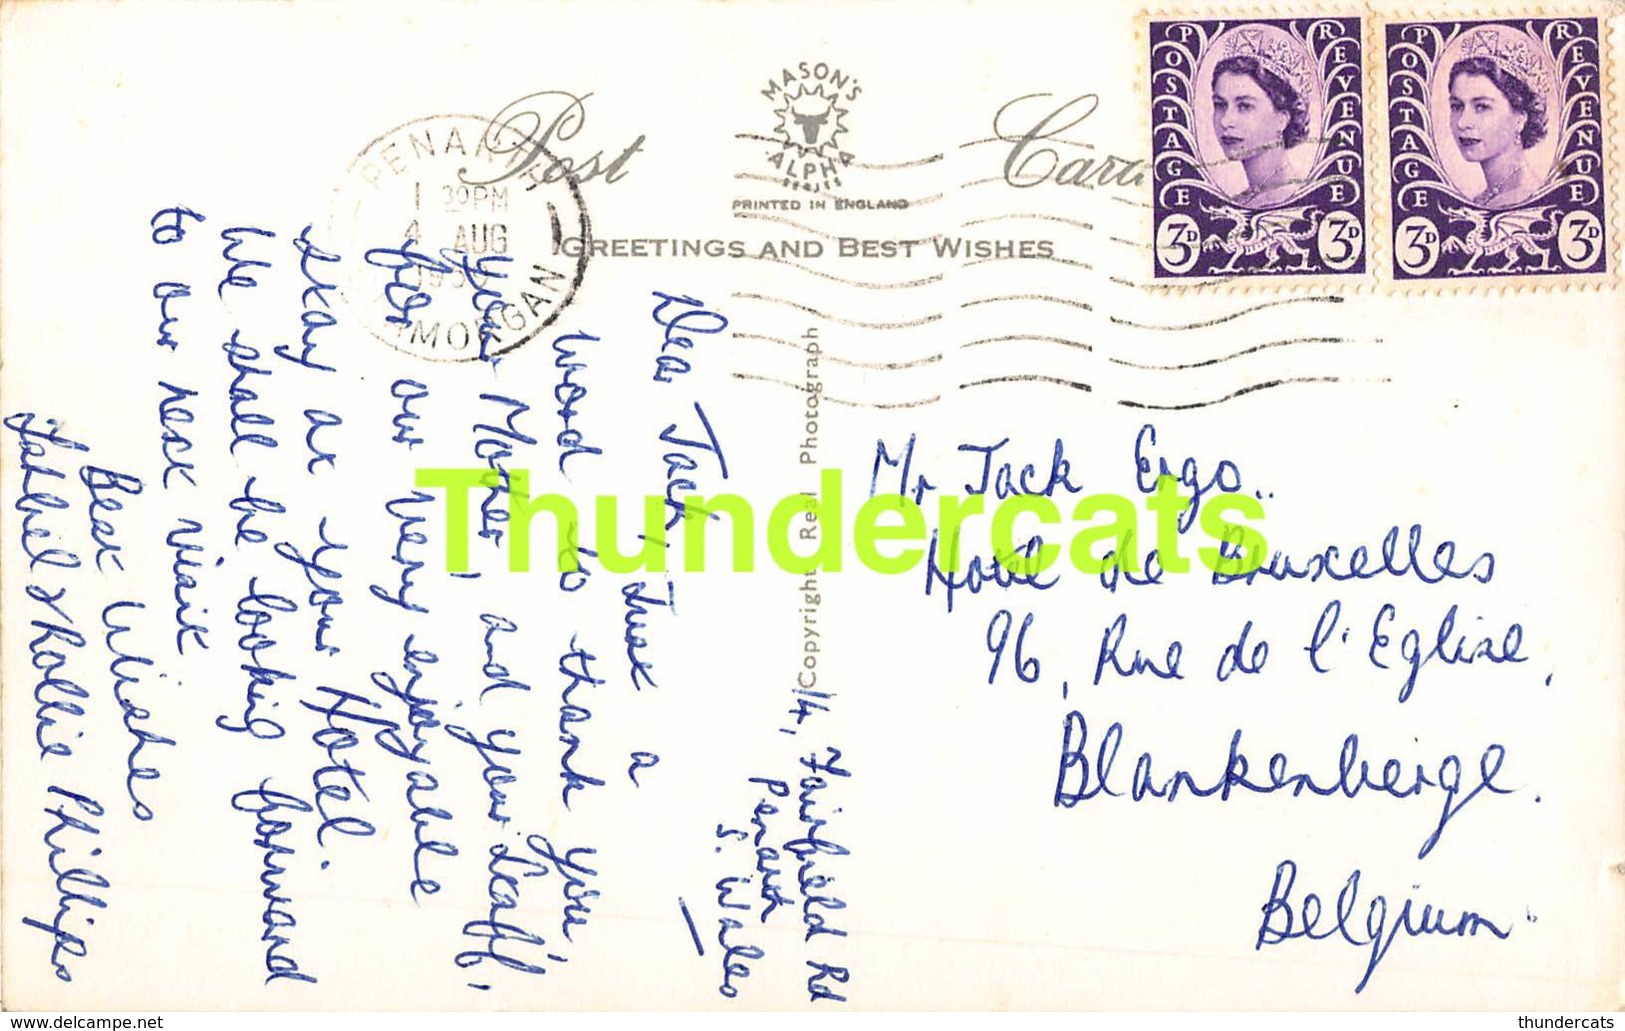 Post Card
MASON'S
ALPHA
SERIES
PRINTED IN ENGLAND
GREETINGS AND BEST WISHES
POSTAGE REVENUE
3D 3D
POSTAGE REVENUE
3D 3D
PENARTH
1 30PM
4 AUG
GLAMORGAN
14, Fairfield Rd
Penarth
S. Wales
Dear Jack, Just a
word to thank you,
your Mother, and your Staff,
for our very enjoyable
stay at your Hotel.
We shall be looking forward
to our next visit.
Best Wishes
& Rollie Phillips
Copyright Real Photograph
Mr Jack Ergo.
Hotel de Bruxelles
96, Rue de l'Eglise,
Blankenberge.
Belgium.
Thundercats
delcampe.net
thundercats